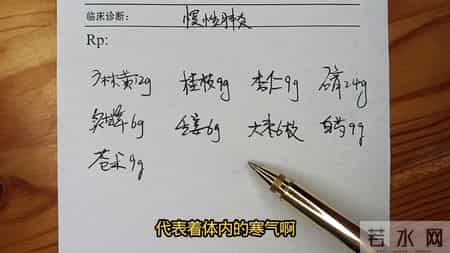 临床诊断: 慢性肺炎
Rp:
麻黄12g 桂枝9g 杏仁9g 石膏24g
炙甘草6g 生姜6g 大枣6枚 白芍9g
苍术9g
代表着体内的寒气啊
若水网